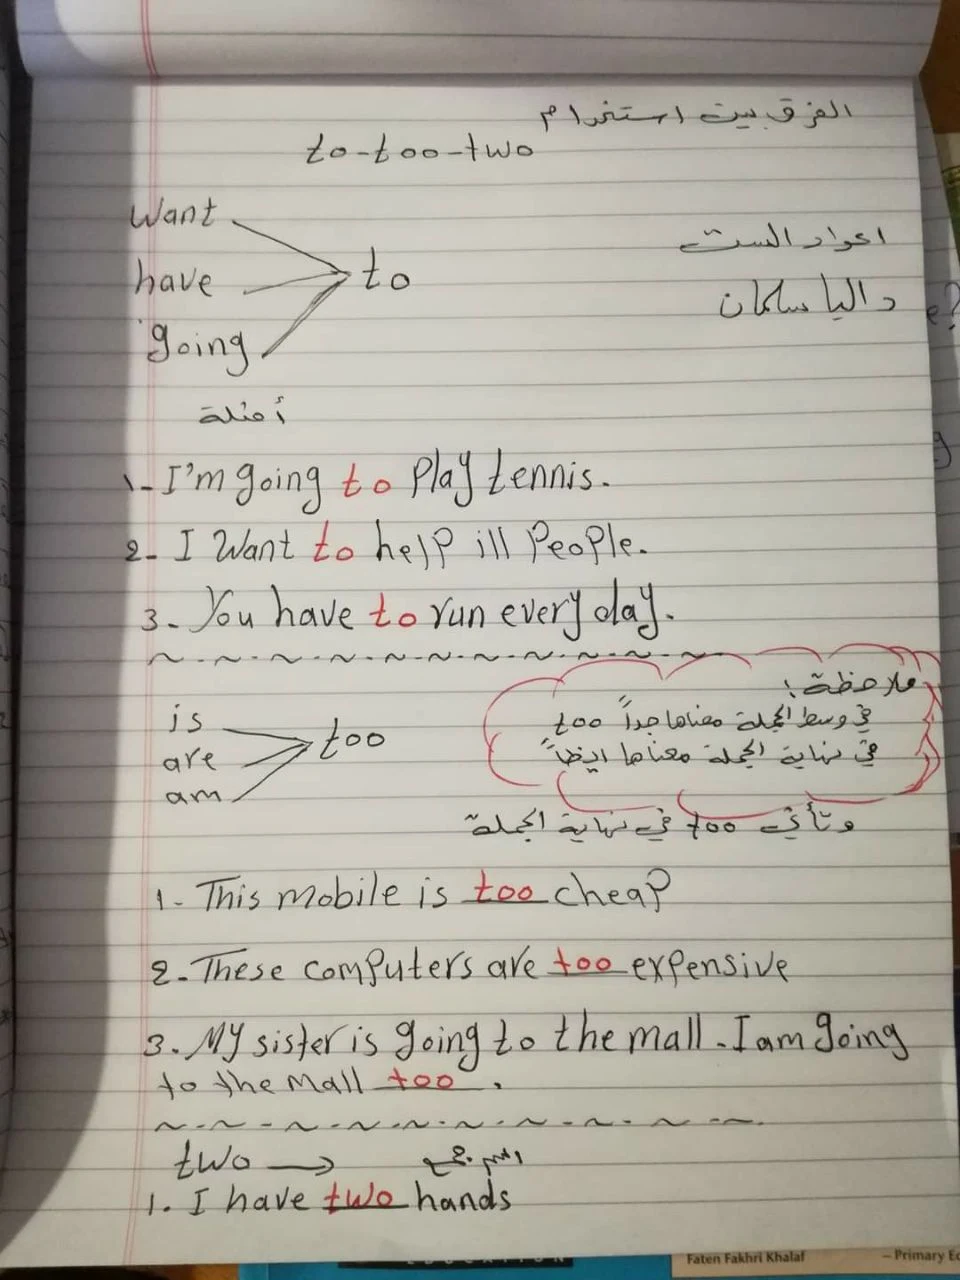 الفرق بين استخدام
to-too-two
want
have
going
to
اعداد الست
داليا سلمان
أمثلة
1- I'm going to Play tennis.
2- I want to help ill People.
3- You have to run every day.
is
are
am
too
ملاحظة:
too في وسط الجملة معناها جداً
في نهاية الجملة معناها ايظاً
وتأتي too في نهاية الجملة
1- This mobile is too cheap
2-These computers are too expensive
3. My sister is going to the mall. I am going
to the mall too.
two → اسم جمع
1. I have two hands
Faten Fakhri Khalaf
– Primary Ed